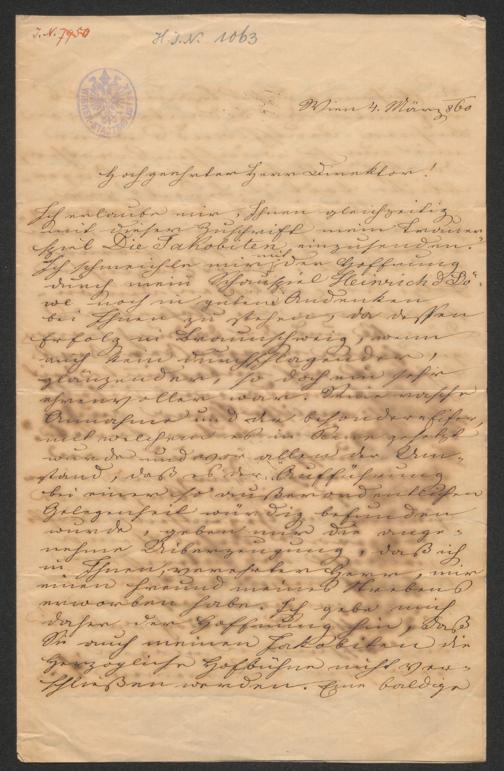 J. N. 7950
H. I. N. 1063
Wien 4. März 860
Hochgeehrter Herr Direktor!
Ich erlaube mir, Ihnen gleichzeitig
mit dieser Zuschrift mein Trauer-
spiel Die Jakobiten, einzusenden.
Ich schmeichle mir mit der Hoffnung
durch mein Schauspiel Heinrich d Lö-
we noch in gutem Andenken
bei Ihnen zu stehen, da dessen
Erfolg in Braunschweig, wenn
auch kein durchschlagender,
glänzender, so doch ein sehr
ehrenvoller war. Seine rasche
Annahme und der besondere Eifer,
mit welchem es in Szene gesetzt
wurde und vor allem der Um-
stand, daß es der Aufführung
bei einer so außerordentlichen
Gelegenheit würdig befunden
wurde, geben mir die ange-
nehme Überzeugung, daß ich
in Ihnen, verehrter Herr, mir
einen Freund meines Strebens
erworben habe. Ich gebe mich
daher der Hoffnung hin, daß
Sie auch meinen Jakobiten die
Herzogliche Hofbühne nicht ver-
schließen werden. Eine baldige